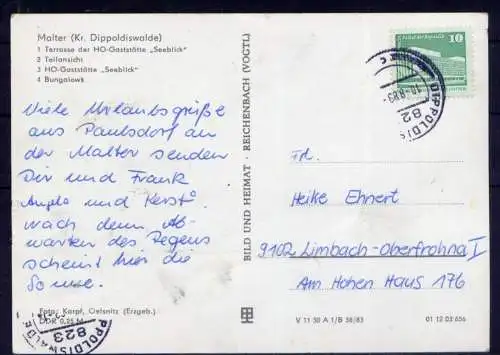 Malter (Kr. Dippoldiswalde)
1 Terrasse der HO-Gaststätte „Seeblick"
2 Teilansicht
3 HO-Gaststätte „Seeblick"
4 Bungalows
Viele Urlaubsgrüße
aus Paulsdorf an
der Malter senden
Dir und Frank
und Kerst.
nach dem Ab-
warten des Regens
scheint hier die
Sonne.
Foto: Karpf, Oelsnitz (Erzgeb.)
DDR 0,25 M
BILD UND HEIMAT · REICHENBACH (VOGTL)
10
DIPPOLDIS
82
-8.83
Frl.
Heike Ehnert
9102 Limbach-Oberfrohna I
Am Hohen Haus 176
V 11 50 A 1/B 38/83
01 12 03 656
PPOLDIS
823